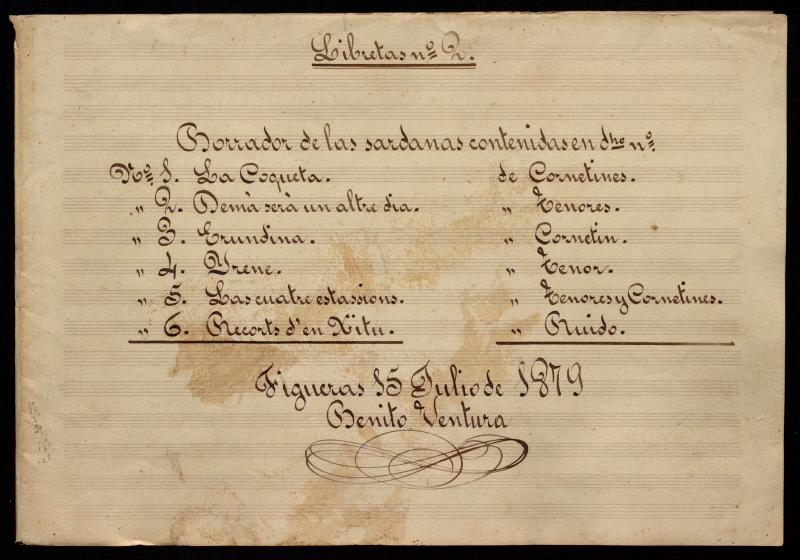 Libretas nº 2.
Borrador de las sardanas contenidas en dho nº.
Nº. 1. La Coqueta. de Cornetines.
„ 2. Demà serà un altre dia. „ Tenores.
„ 3. Erundina. „ Cornetin.
„ 4. Yrene. „ Tenor.
„ 5. Las cuatre estassions. „ Tenores y Cornetines.
„ 6. Recorts d'en Xitu. „ Ruido.
Figueras 15 Julio de 1879
Benito Ventura